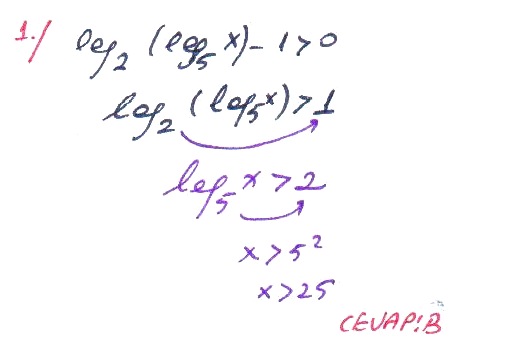 1./ log₂ (log₅ x) - 1 > 0
log₂ (log₅ x) > 1
log₅ x > 2
x > 5²
x > 25
CEVAP: B